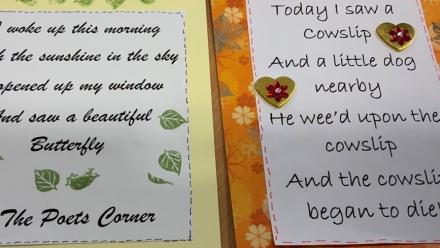 I woke up this morning
the sunshine in the sky
opened up my window
And saw a beautiful
Butterfly
The Poets Corner
Today I saw a
Cowslip
And a little dog
nearby
He wee'd upon the
cowslip
And the cowslip
began to die!